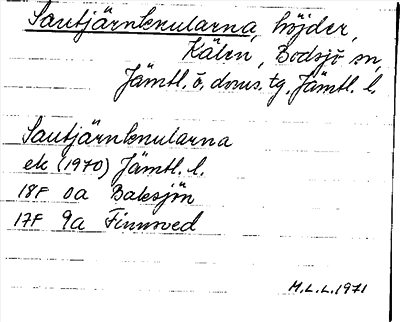 Sautjärnknularna, höjder,
Kälen, Bodsjö sn,
Jämtl. ö. doms. tg, Jämtl. l.
Sautjärnknularna
ek (1970) Jämtl. l.
18F 0a Baksjön
17F 9a Finnsved
M.L.L. 1971